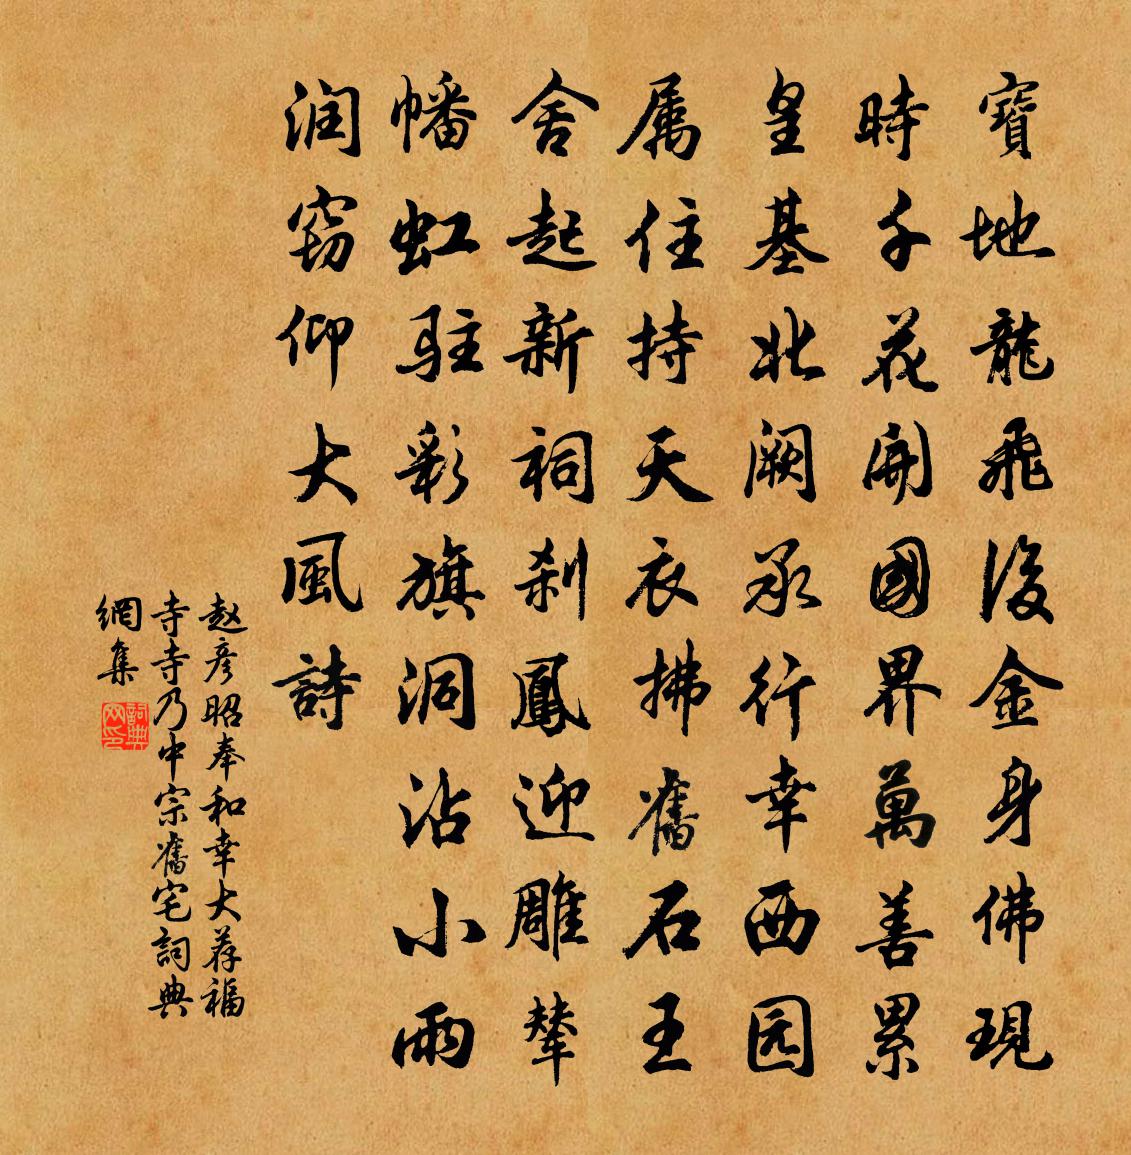 寶地龍飛後金身佛現
時千花開國界萬善累
皇基北阙承行幸西园
属住持天衣拂舊石王
舍起新祠刹鳳迎雕輦
幡虹駐彩旗洞沾小雨
润窃仰大風詩
赵彦昭奉和幸大荐福
寺寺乃中宗舊宅詞典
網集
詞典网印